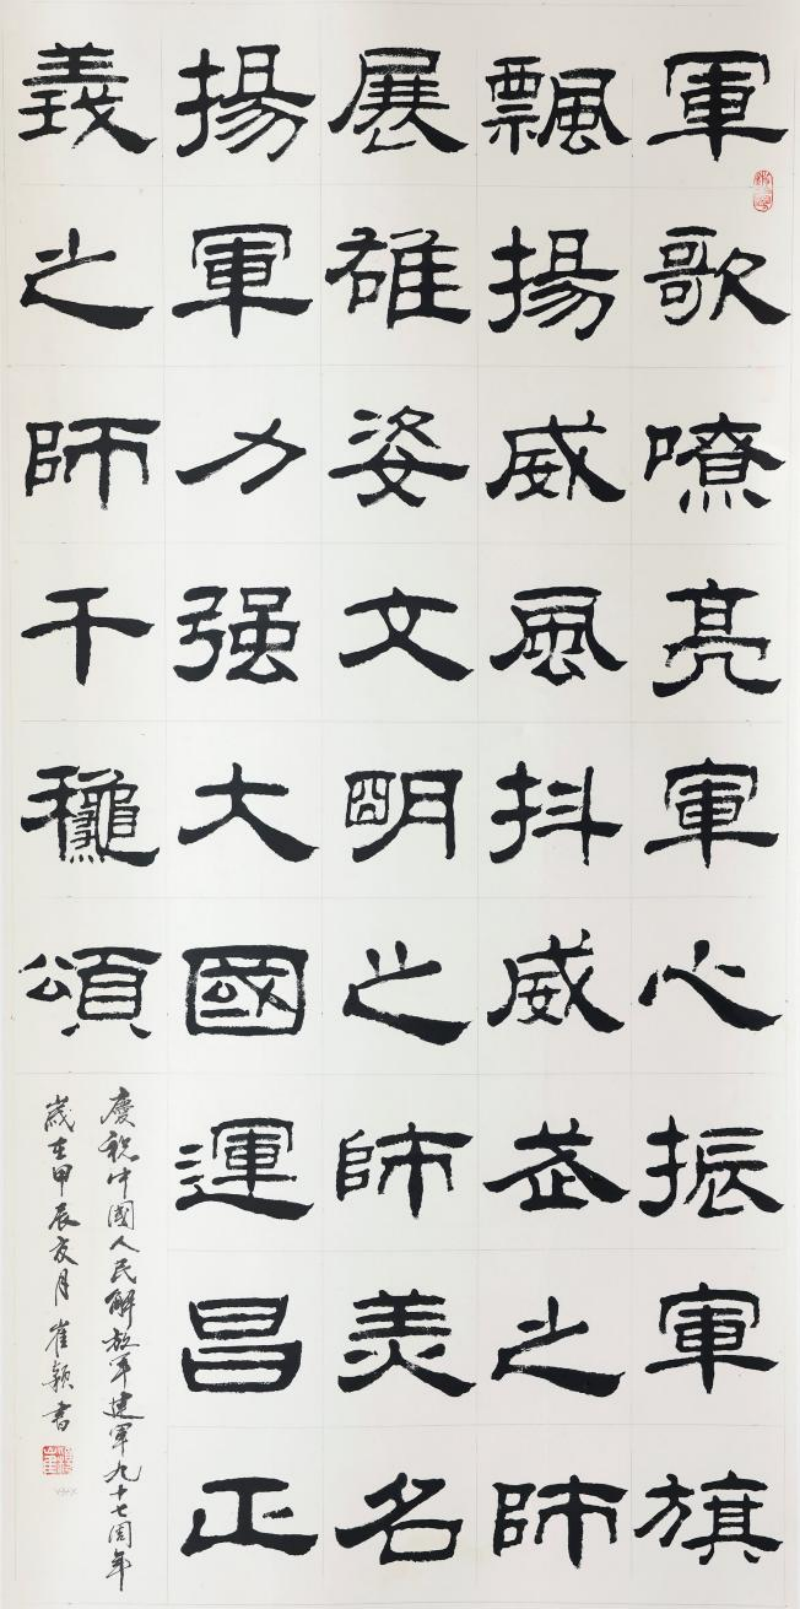 軍歌嘹亮軍心振軍旗
飄揚威風抖威武之師
展雄姿文朙之師美名
揚軍力强大國運昌正
義之師千龝頌
慶祝中國人民解放軍建軍九十七周年
歲在甲辰夏月崔穎書